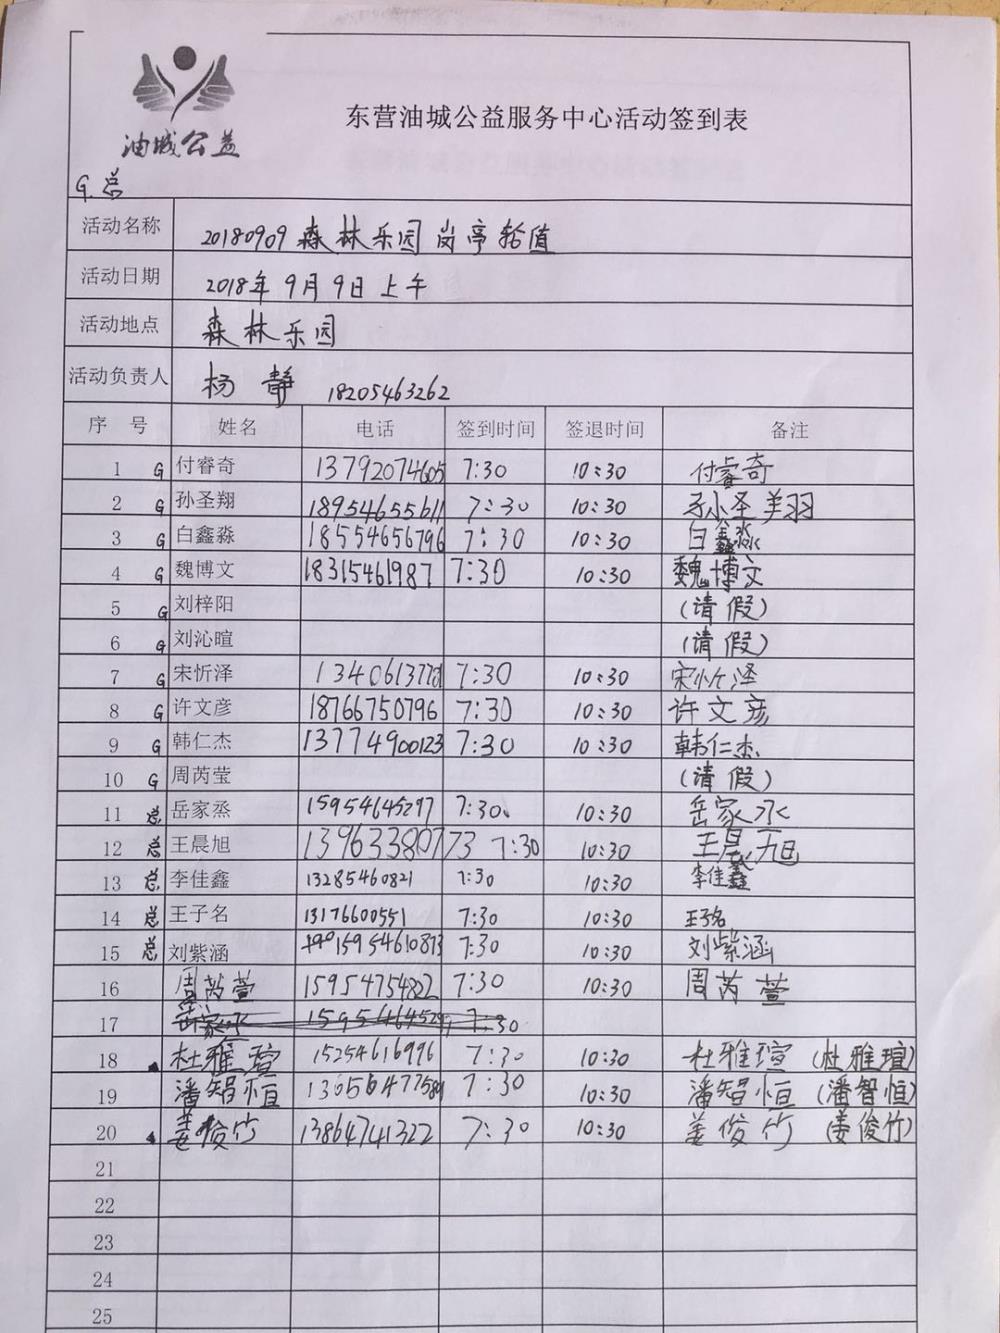 油城公益
东营油城公益服务中心活动签到表
G.总
活动名称 20180909森林乐园岗亭轮值
活动日期 2018年9月9日上午
活动地点 森林乐园
活动负责人 杨静 18205463262
序号 姓名 电话 签到时间 签退时间 备注
1 G 付睿奇 13792074605 7:30 10:30 付睿奇
2 G 孙圣翔 18954655611 7:30 10:30 孙圣翔
3 G 白鑫淼 18554656796 7:30 10:30 白鑫淼
4 G 魏博文 18315461987 7:30 10:30 魏博文
5 G 刘梓阳 (请假)
6 G 刘沁暄 (请假)
7 G 宋忻泽 7:30 10:30 宋忻泽
8 G 许文彦 18766750796 7:30 10:30 许文彦
9 G 韩仁杰 13774900123 7:30 10:30 韩仁杰
10 G 周芮莹 (请假)
11 总 岳家烝 15954645297 7:30 10:30 岳家水
12 总 王晨旭 13963380773 7:30 10:30 王晨旭
13 总 李佳鑫 13285460821 7:30 10:30 李佳鑫
14 总 王子名 13176600551 7:30 10:30 王子名
15 总 刘紫涵 15954610873 7:30 10:30 刘紫涵
16 周芮萱 15954754322 7:30 10:30 周芮萱
17 岳家水 7:30
18 杜雅瑄 15254616996 7:30 10:30 杜雅瑄 (杜雅瑄)
19 潘智恒 7:30 10:30 潘智恒 (潘智恒)
20 姜俊竹 13864741322 7:30 10:30 姜俊竹 (姜俊竹)
21
22
23
24
25